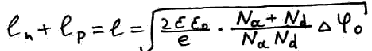 ℓₙ + ℓₚ = ℓ = √(2 ε ε₀ / e · (Nₐ + N_d) / (Nₐ N_d) Δφ₀)